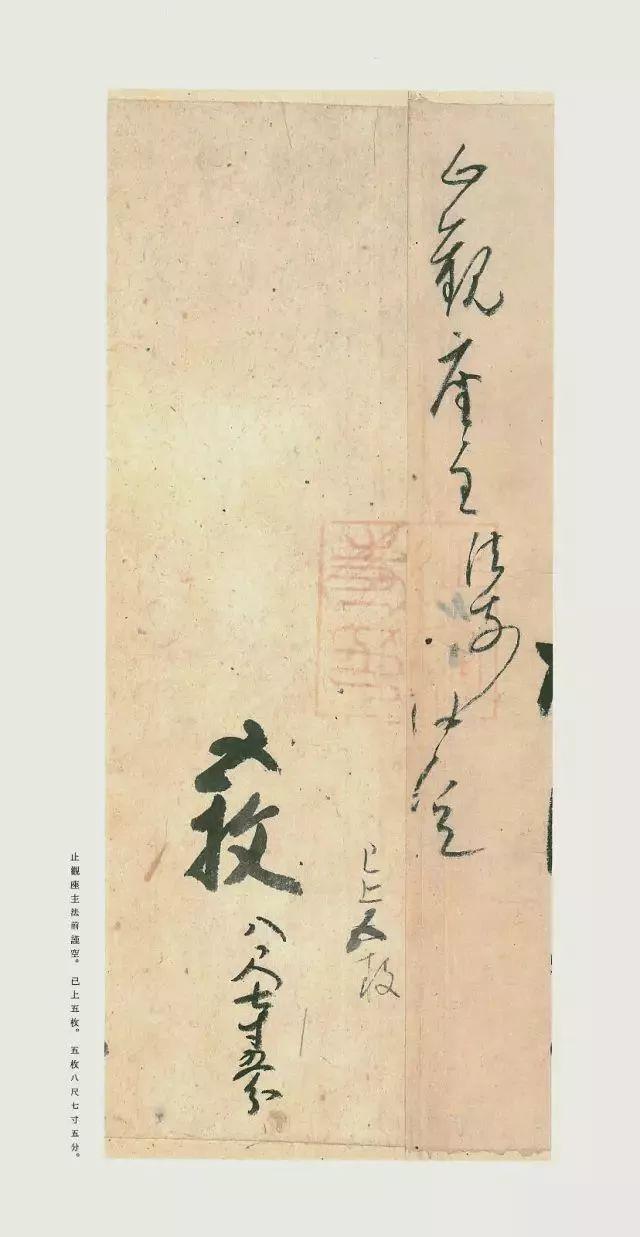 止觀座主法前謹空
已上五枚
五枚
八尺七寸五分
止觀座主法前謹空。 已上五枚。 五枚八尺七寸五分。